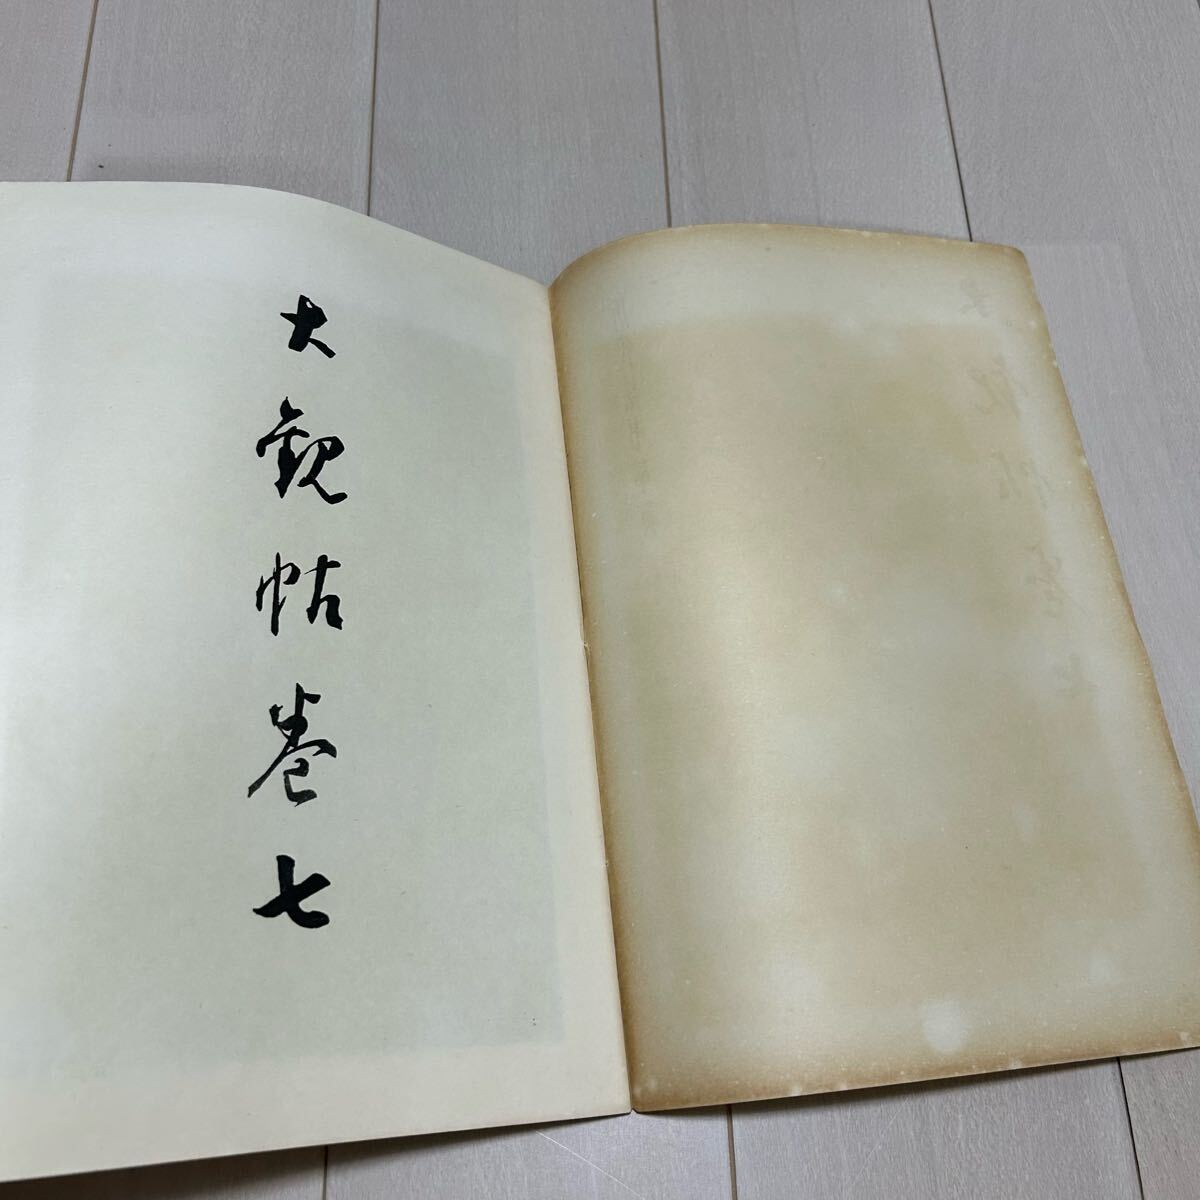 大観帖巻七